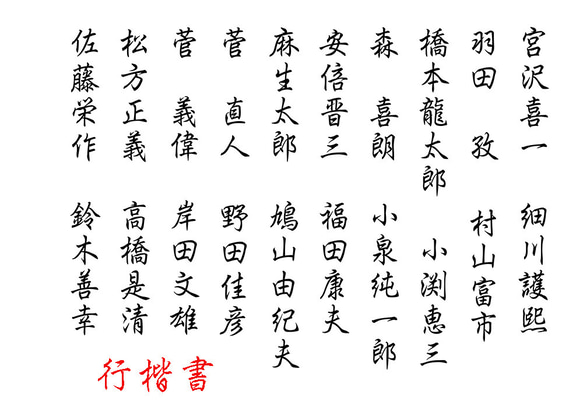 宮沢喜一
細川護熙
羽田 孜
村山富市
橋本龍太郎
小渕恵三
森 喜朗
小泉純一郎
安倍晋三
福田康夫
麻生太郎
鳩山由紀夫
菅 直人
野田佳彦
菅 義偉
岸田文雄
松方正義
高橋是清
佐藤栄作
鈴木善幸
行楷書